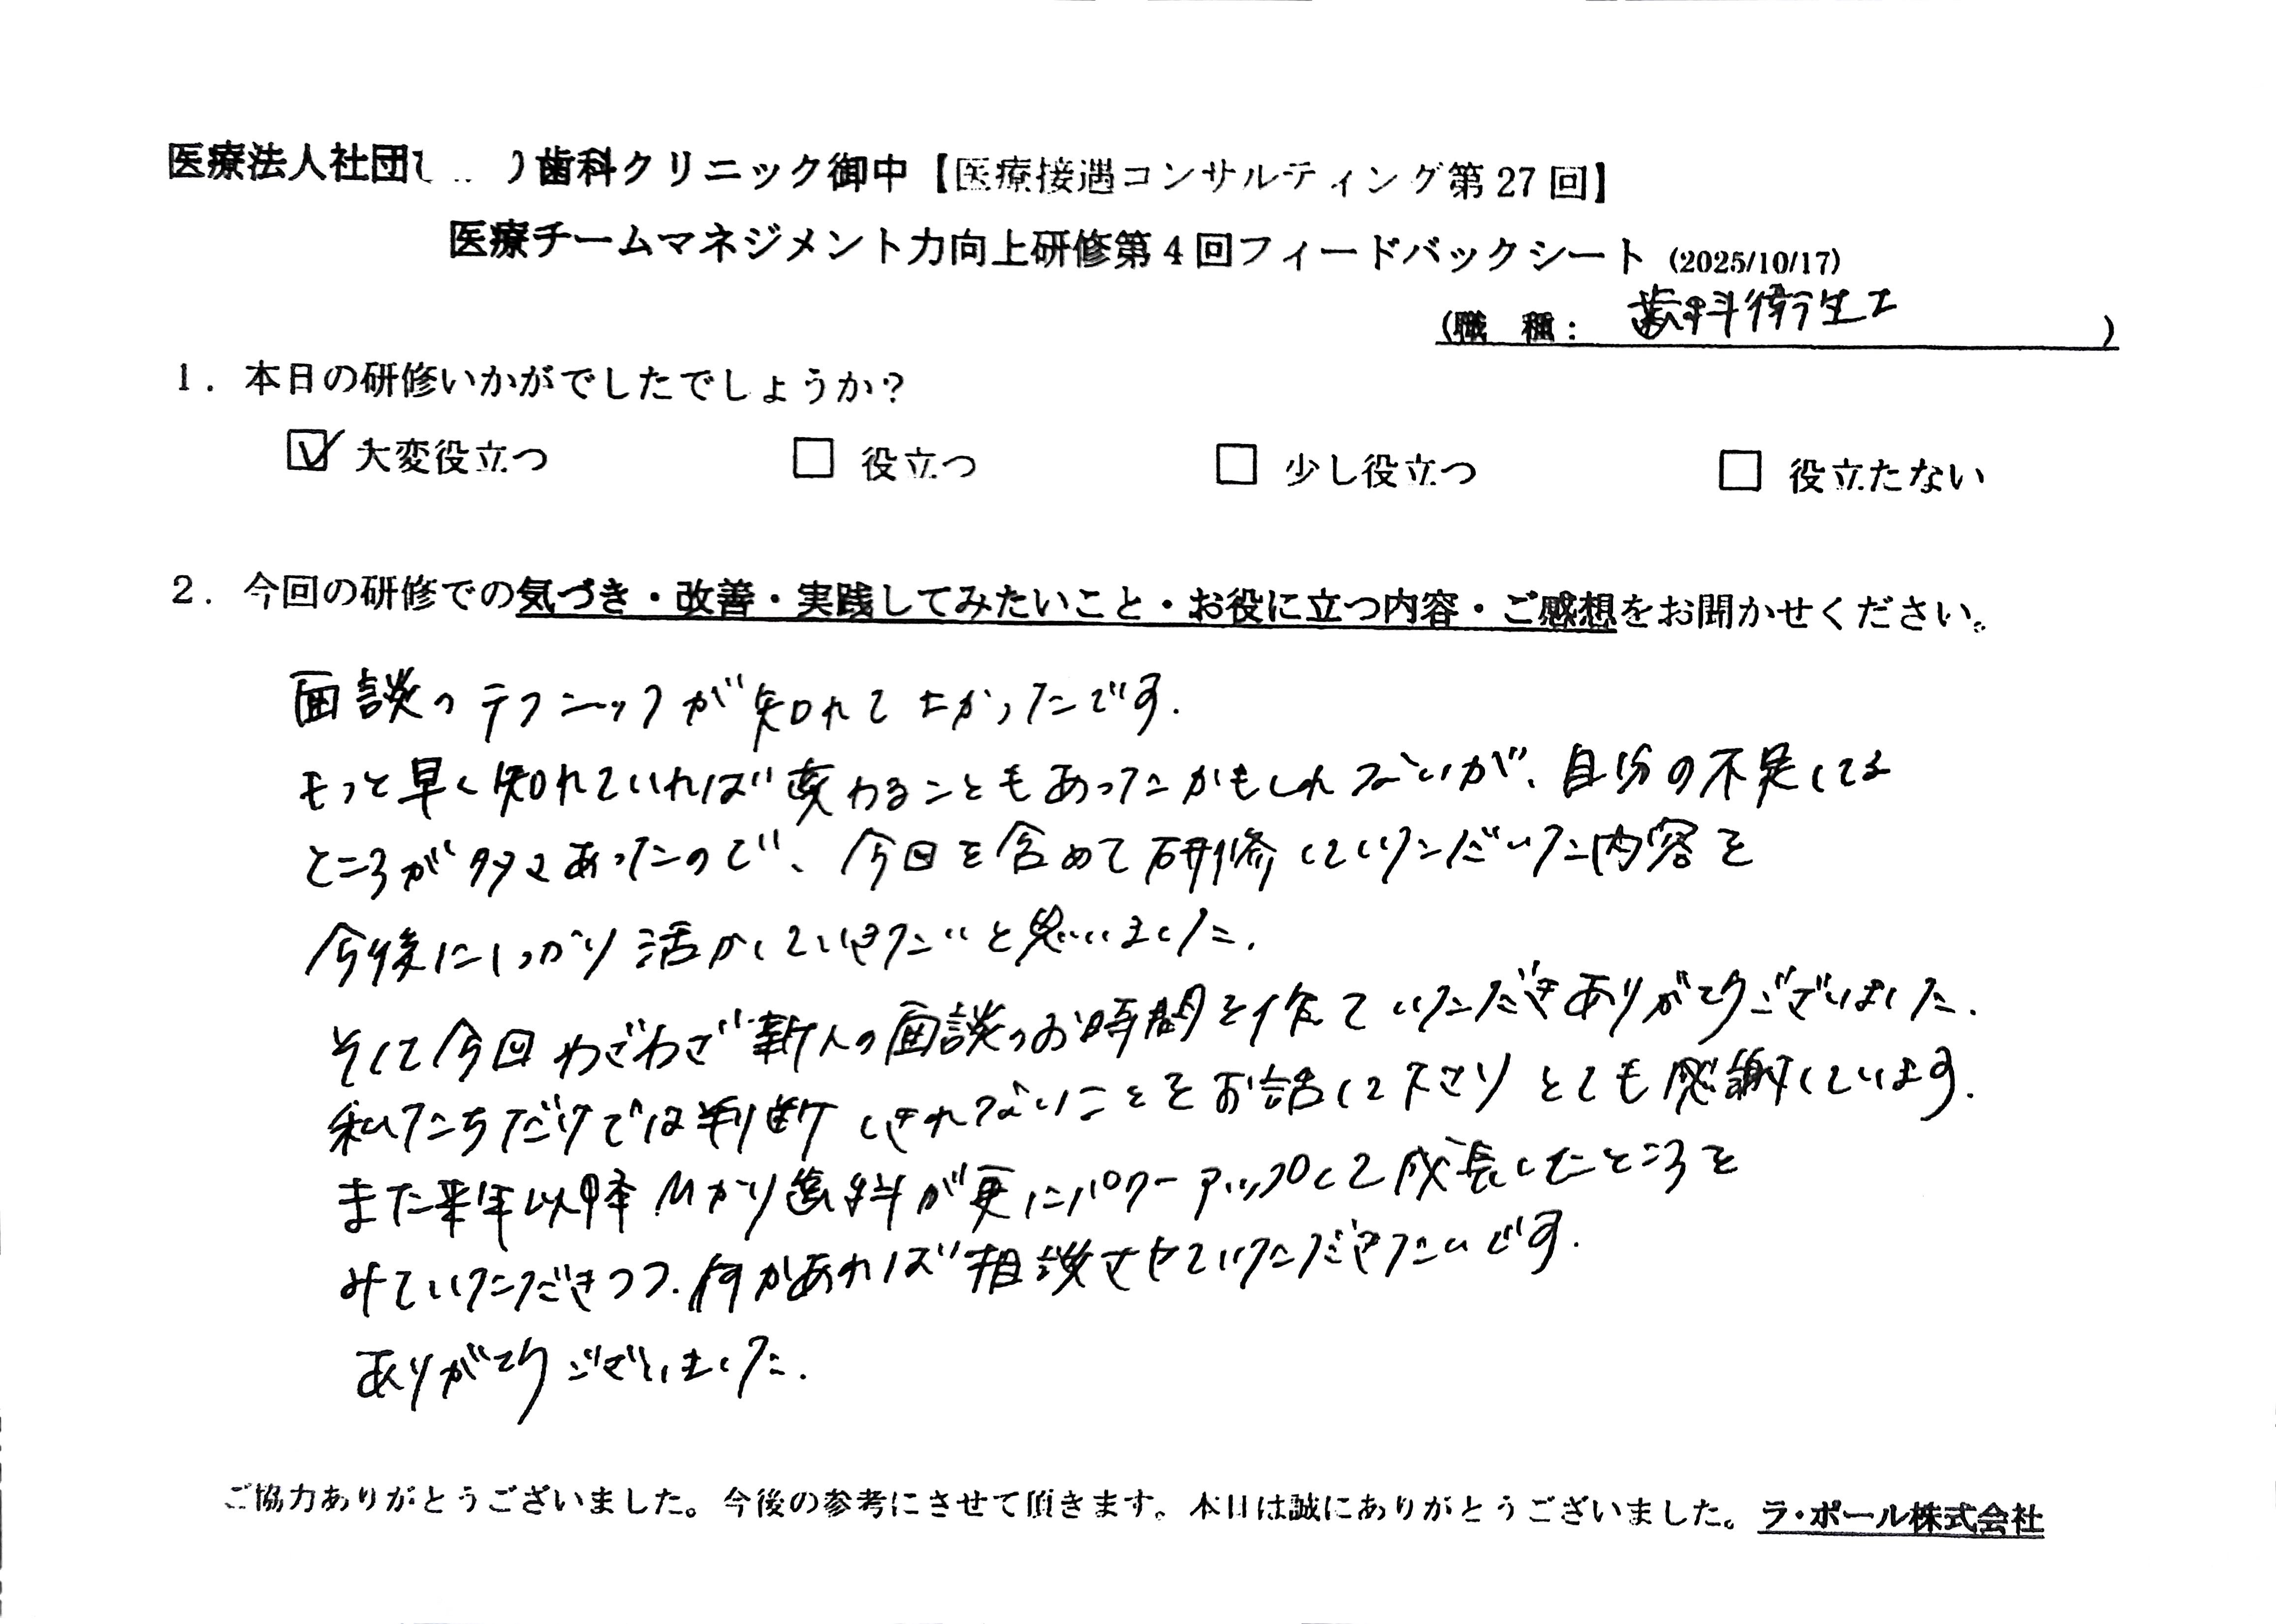 医療法人社団 歯科クリニック御中【医療接遇コンサルティング第27回】
医療チームマネジメント力向上研修第4回フィードバックシート (2025/10/17)
(職 種: 歯科衛生士 )
1. 本日の研修いかがでしたでしょうか?
☑ 大変役立つ □ 役立つ □ 少し役立つ □ 役立たない
2. 今回の研修での気づき・改善・実践してみたいこと・お役に立つ内容・ご感想をお聞かせください。
面談のテクニックが知れてよかったです.
もっと早く知れていれば変わることもあったかもしれないが、自分の不足してる
ところが多々あったので、今回を含めて研修していただいた内容を
今後にしっかり活かしていきたいと思いました.
そして今回わざわざ新人の面談のお時間を作っていただきありがとうございました.
私たちだけでは判断しきれないことをお話して下さりとても感謝しています.
また来年以降 かり歯科が更にパワーアップして成長したところを
みていただきつつ.何かあれば相談させていただきたいです.
ありがとうございました.
ご協力ありがとうございました。今後の参考にさせて頂きます。本日は誠にありがとうございました。ラ・ポール株式会社